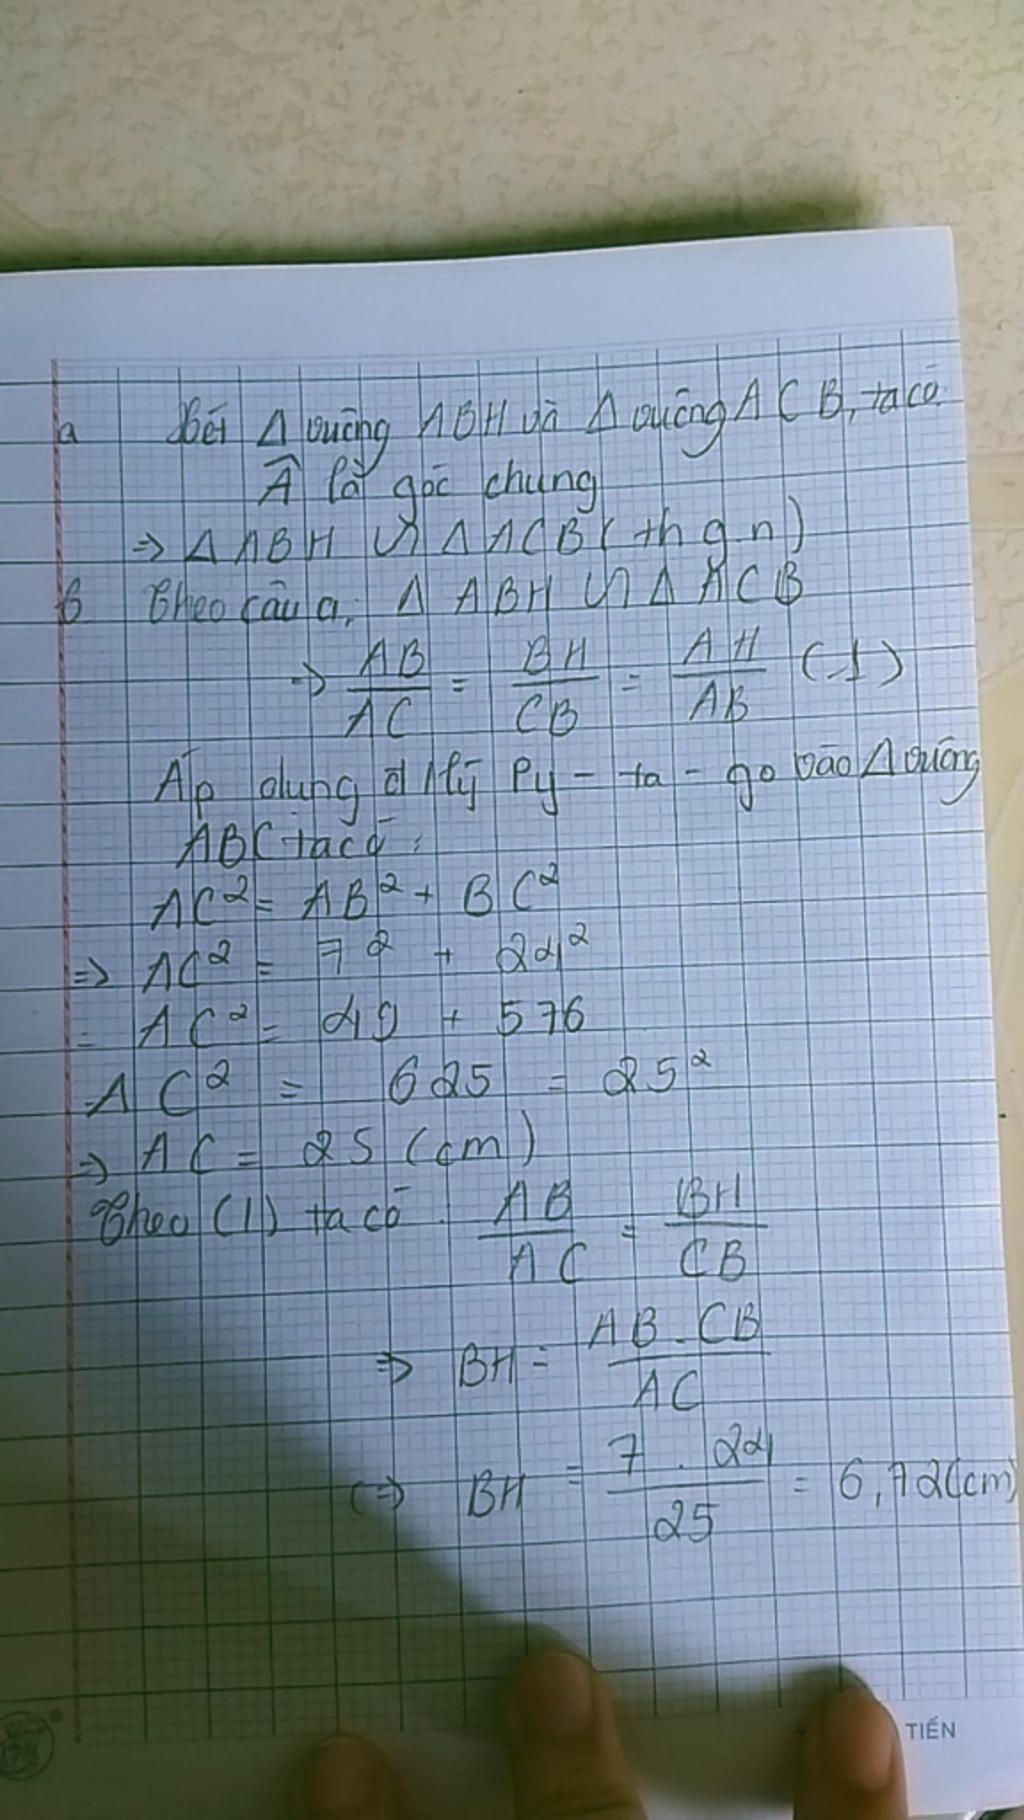 a Xét Δ vuông ABH và Δ vuông ACB, ta có
Â là góc chung
=> Δ ABH ∽ Δ ACB (th g.n)
b Theo câu a, Δ ABH ∽ Δ ACB
=> AB/AC = BH/CB = AH/AB (1)
Áp dụng đ/lý Py - ta - go vào Δ vuông
ABC ta có:
AC² = AB² + BC²
=> AC² = 7² + 24²
= AC² = 49 + 576
AC² = 625 = 25²
=> AC = 25 (cm)
Theo (1) ta có AB/AC = BH/CB
=> BH = AB . CB/AC
(=> BH = 7 . 24/25 = 6,72 (cm)
TIẾN